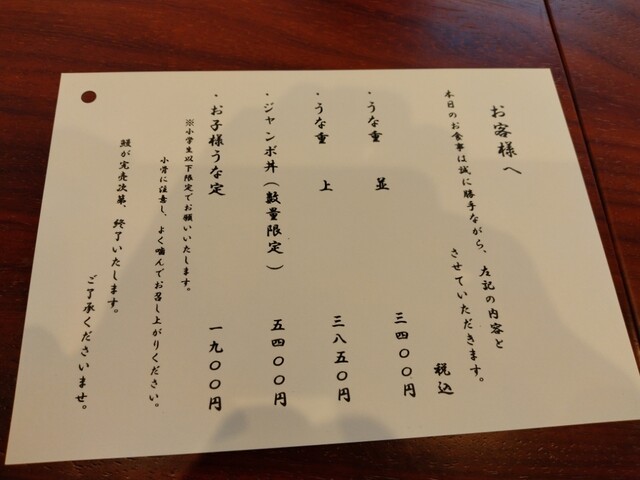 お客様へ
本日のお食事は誠に勝手ながら、左記の内容と
させていただきます。
税込
・うな重 並 三四〇〇円
・うな重 上 三八五〇円
・ジャンボ丼(数量限定) 五四〇〇円
・お子様うな定 一九〇〇円
※小学生以下限定でお願いいたします。
小骨に注意し、よく噛んでお召し上がりください。
鰻が完売次第、終了いたします。
ご了承くださいませ。